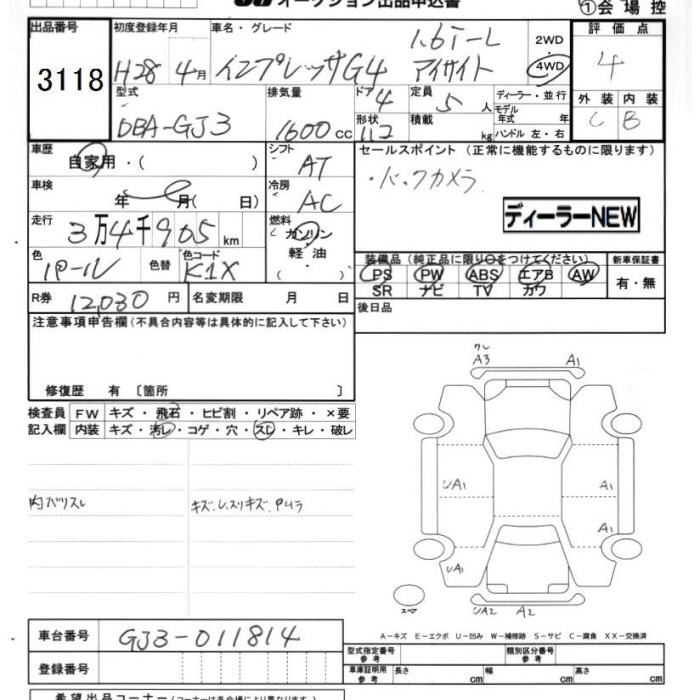 オークション出品申込書
①会場控
出品番号 初度登録年月 車名・グレード 評価点
3118 H28年4月 インプレッサG4 1.6i-L アイサイト 2WD 4WD 4
型式 排気量 ドア 定員 ディーラー・並行 外装 内装
DBA-GJ3 1600cc 4 5人 モデル年式 年 C B
形状 積載 kg ハンドル 左・右
112
車歴 自家用・( ) シフト AT セールスポイント (正常に機能するものに限ります)
車検 年 月( 日) 冷房 AC ・バックカメラ
ディーラーNEW
走行 3万4千905km 燃料 ガソリン 軽油 ( )
色 パール 色替 色コード K1X
装備品(純正品に限り○をつけてください) 新車保証書
PS PW ABS エアB AW 有・無
SR ナビ TV カワ
R券 12,030円 名変期限 月 日 後日品
注意事項申告欄(不具合内容等は具体的に記入して下さい)
修復歴 有 〔箇所 〕
検査員 FW キズ・飛石・ヒビ割・リペア跡・×要
記入欄 内装 キズ・汚レ・コゲ・穴・スレ・キレ・破レ
内バリスレ
キズ、
A3 A1
UA1 A1
A1
UA1
UA2 A2
スペア
A-キズ E-エクボ U-凹み W-補修跡 S-サビ C-腐食 XX-交換済
車台番号 GJ3-011814
型式指定番号 参考 類別区分番号 参考
登録番号
車庫証明用 参考 長さ cm 幅 cm 高さ cm
希望出品コーナー(コーナーは各会場により異なります)